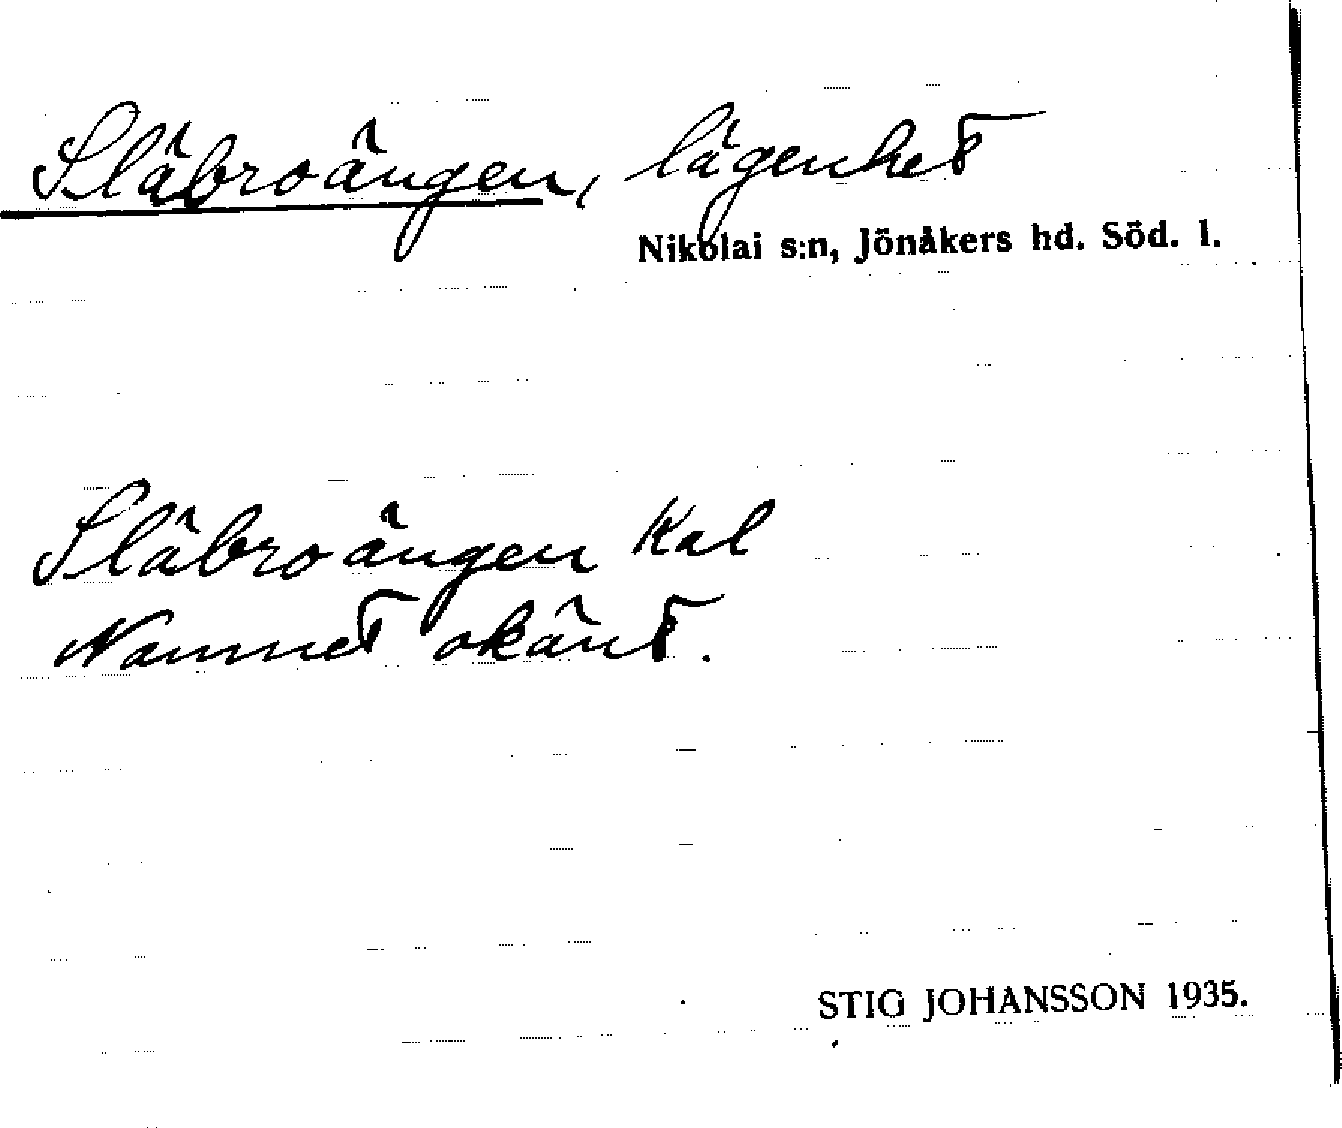 Släbroängen, lägenhet
Nikolai s:n, Jönåkers hd. Söd. l.
Släbroängen Kal
Namnet okänt.
STIG JOHANSSON 1935.